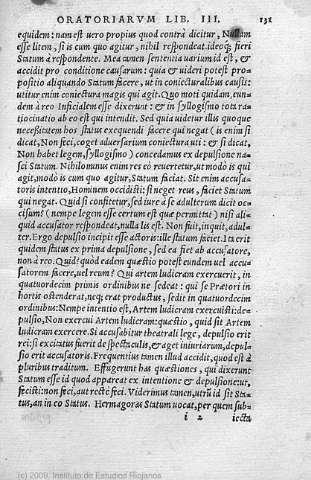 ORATORIARVM LIB. III. 131
equidem: nam est uero propius quod contrà dicitur, Nullum
esse litem, si is cum quo agitur, nihil respondeat. ideoq; fieri
Statum à respondente. Mea tamen sententia uarium id est, &
accidit pro conditione causarum: quia & uideri potest pro
positio aliquando Statum facere, ut in coniecturalibus causis:
utitur enim coniectura magis qui agit. Quo moti quidam, eun
dem à reo Inficialem esse dixerunt: & in syllogismo tota ra
tiocinatio ab eo est qui intendit. Sed quia uidetur illis quoque
necessitatem hos status exequendi facere qui negat (is enim si
dicat, Non feci, coget aduersarium coniectura uti: & si dicat,
Non habet legem, syllogismo) concedamus ex depulsione na-
sci Statum. Nihilominus enim res eò reuertetur, ut modò is qui
agit, modò is cum quo agitur, Statum faciat. Sit enim accusa-
toris intentio, Hominem occidisti: si neget reus, faciet Statum
qui negat. Quid si confitetur, sed iure à se adulterum dicit oc-
cisum? (nempe legem esse certum est quæ permittat) nisi ali-
quid accusator respondeat, nulla lis est. Non fuit, inquit, adul-
ter. Ergo depulsio incipit esse actoris: ille statum faciet. Ita erit
quidem status ex prima depulsione, sed ea fiet ab accusatore,
non à reo. Quid? quòd eadem quæstio potest eundem uel accu-
satorem facere, uel reum? Qui artem ludicram exercuerit, in
quatuordecim primis ordinibus ne sedeat: qui se Prætori in
hortis ostenderat, neq; erat productus, sedit in quatuordecim
ordinibus: Nempe intentio est, Artem ludicram exercuisti: de-
pulsio, Non exercui Artem ludicram: quæstio, quid sit Artem
ludicram exercere. Si accusabitur theatrali lege, depulsio erit
rei: si excitatus fuerit de spectaculis, & aget iniuriarum, depul-
sio erit accusatoris. Frequentius tamen illud accidit, quod est à
pluribus traditum. Effugerunt has quæstiones, qui dixerunt
Statum esse id quod appareat ex intentione & depulsione, ut,
fecisti: non feci, aut rectè feci. Viderimus tamen, utrũ id sit Sta-
tus, an in eo Status. Hermagoras Statum uocat, per quem sub-
i 2 iecta
(c) 2009, Instituto de Estudios Riojanos